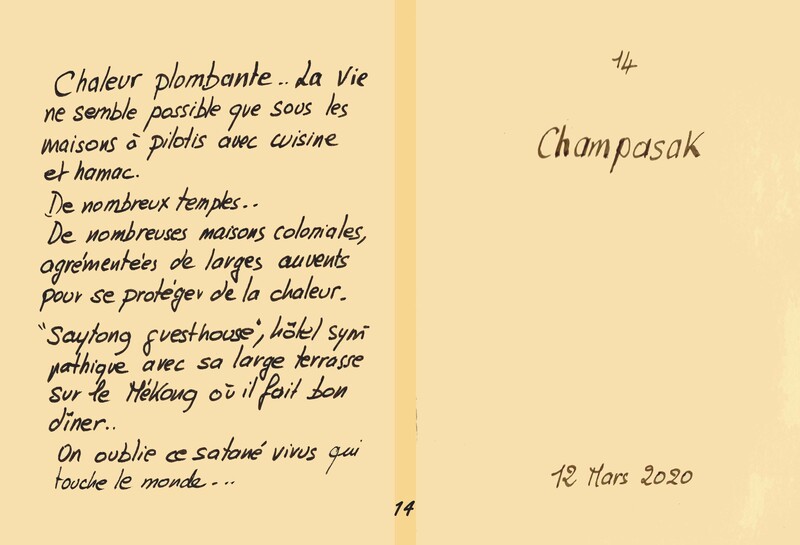 Chaleur plombante.. La Vie
ne semble possible que sous les
maisons à pilotis avec cuisine
et hamac.
De nombreux temples..
De nombreuses maisons coloniales,
agrémentées de larges auvents
pour se protéger de la chaleur.
"Saytong guesthouse", hôtel sym
pathique avec sa large terrasse
sur le Mékong où il fait bon
dîner..
On oublie ce satané virus qui
touche le monde...
14
14
Champasak
12 Mars 2020